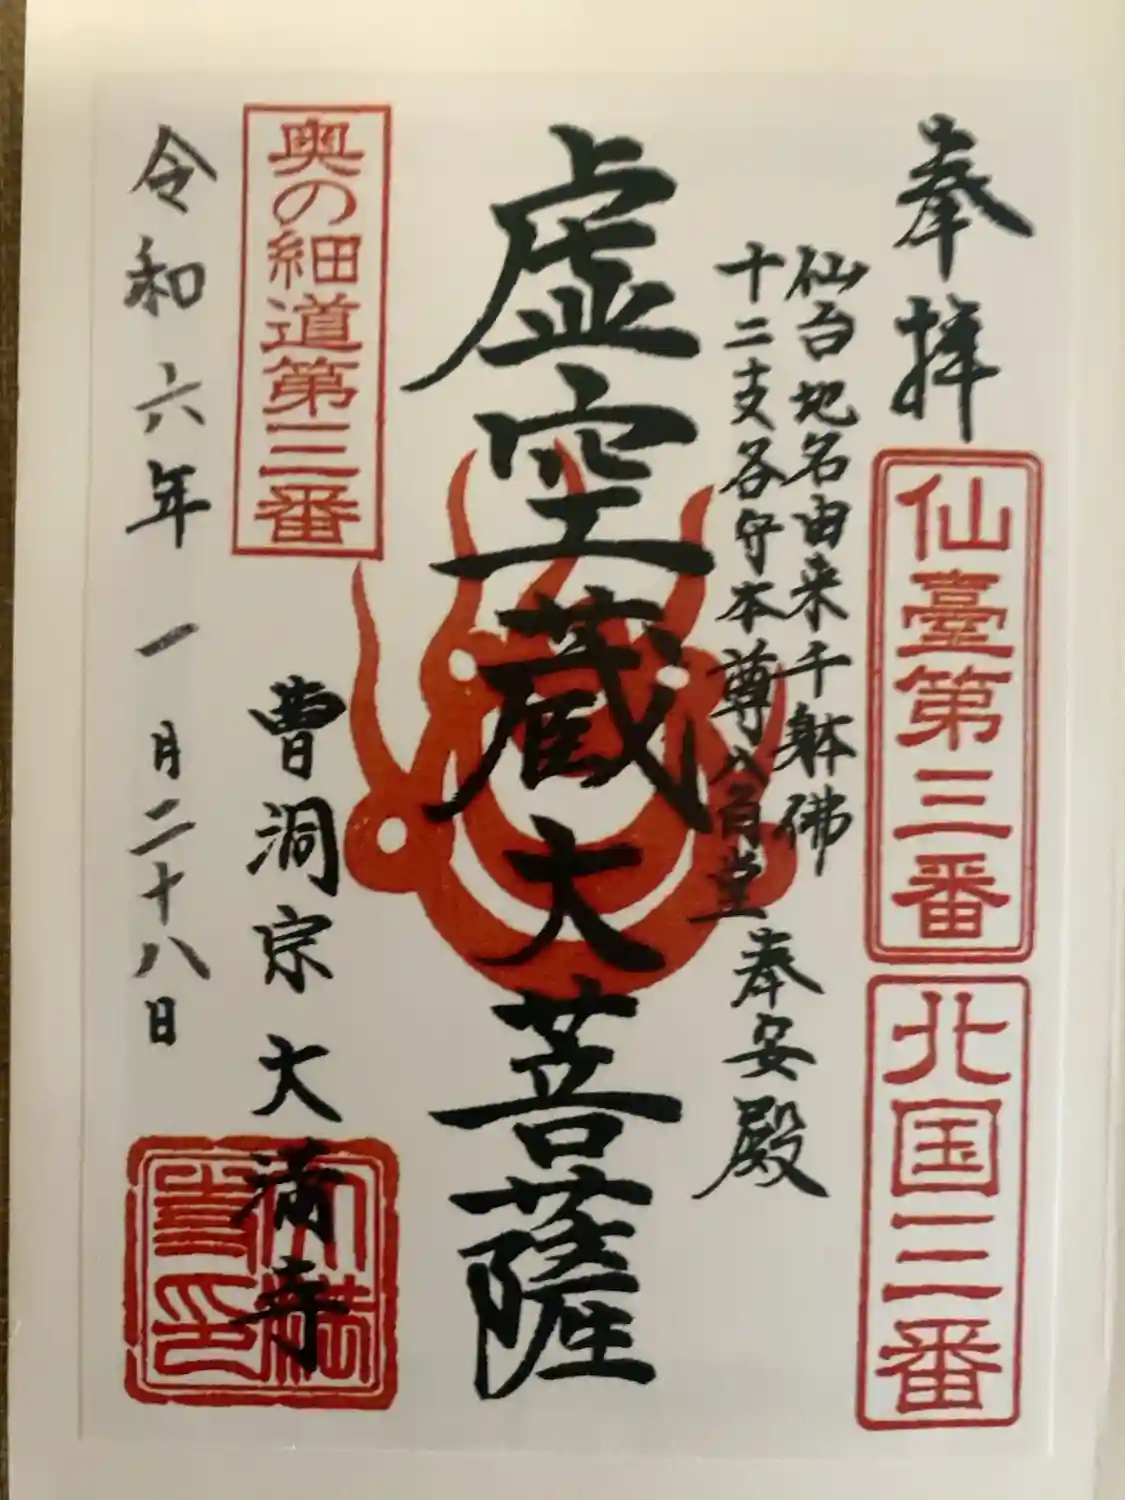 奉拝
仙臺第三番
北国三番
仙台地名由来千躰佛
十二支各守本尊八角堂
奉安殿
虚空蔵大菩薩
奥の細道第三番
曹洞宗大満寺
令和六年一月二十八日